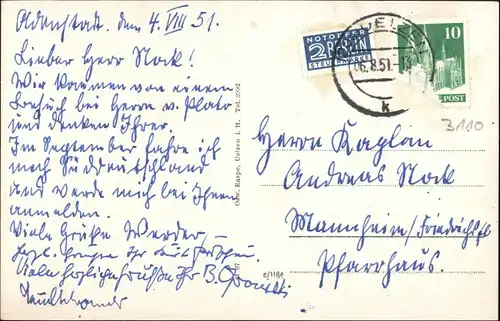 Oldenstadt. den 4. VIII 51.
Lieber Herr Nock!
Wir kommen von einem
Besuch bei Herrn v. Plato
und denken Ihrer.
Im September fahre ich
nach Süddeutschland
und werde mich bei Ihnen
anmelden.
Viele Grüße Werder –
Viele
Ihr B.
NOTOPFER
2 BERLIN
STEUERMARKE
UELZEN
06.8.51.-18
k
10
POST
3110
Herrn Kaplan
Andreas Nock
Mannheim/Friedrichsf
Pfarrhaus.
Oskr. Raspe, Uelzen i. H. Tel. 2592